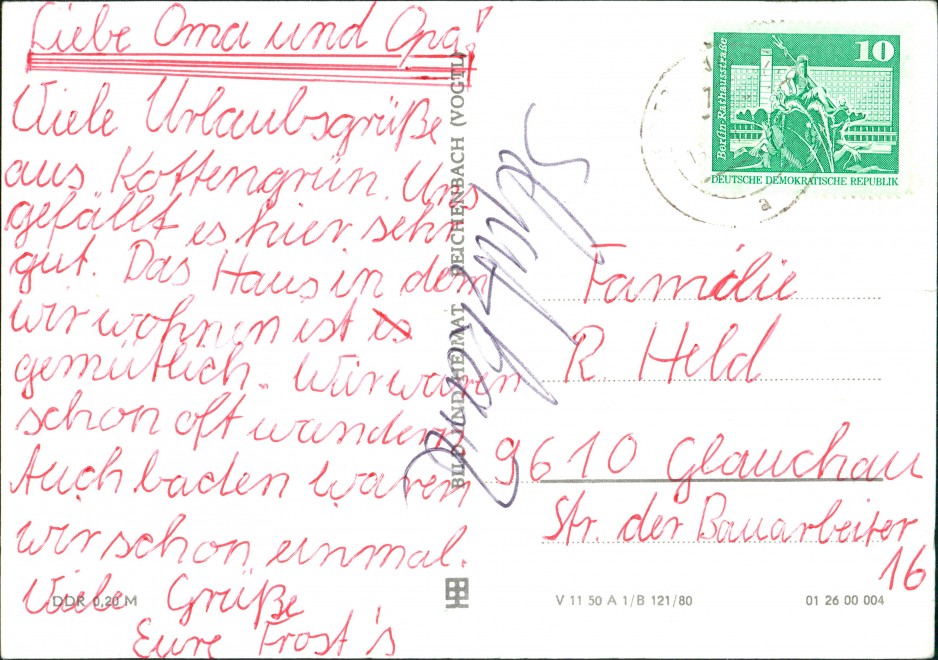 Liebe Oma und Opa!
Viele Urlaubsgrüße
aus Kottengrün. Uns
gefällt es hier sehr
gut. Das Haus in dem
wir wohnen ist es
gemütlich. Wir waren
schon oft wandern.
Auch baden waren
wir schon einmal.
Viele Grüße
Eure Frost's
DDR 0,20 M
BILD UND HEIMAT REICHENBACH (VOGTL)
Berlin-Rathausstraße
10
DEUTSCHE DEMOKRATISCHE REPUBLIK
Familie
R. Held
9610 Glauchau
Str. der Bauarbeiter
16
V 11 50 A 1/B 121/80
01 26 00 004